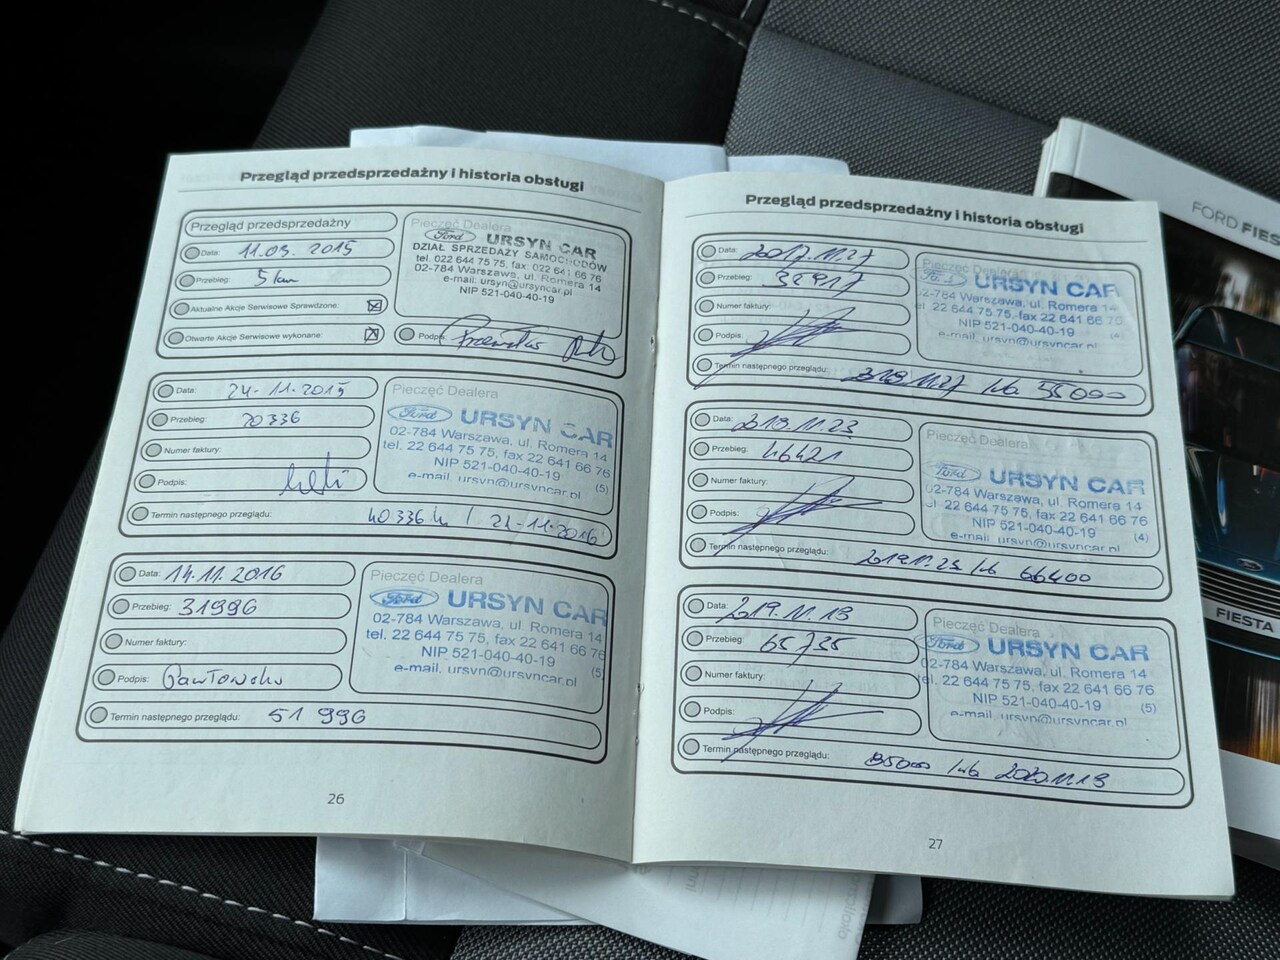 Przegląd przedsprzedażny i historia obsługi
Przegląd przedsprzedażny
Data: 11.03. 2015
Przebieg: 5 km
Aktualne Akcje Serwisowe Sprawdzone:
Otwarte Akcje Serwisowe wykonane:
Pieczęć Dealera
Ford URSYN CAR
DZIAŁ SPRZEDAŻY SAMOCHODÓW
tel. 022 644 75 75, fax: 022 641 66 76
02-784 Warszawa, ul. Romera 14
e-mail: ursyn@ursyncar.pl
NIP 521-040-40-19
Podpis:
Data: 24-11-2015
Przebieg: 20336
Numer faktury:
Podpis:
Pieczęć Dealera
Ford URSYN CAR
02-784 Warszawa, ul. Romera 14
tel. 22 644 75 75, fax 22 641 66 76
NIP 521-040-40-19
e-mail ursyn@ursyncar.pl (5)
Termin następnego przeglądu: 40336 / 24-11-2016
Data: 14.11.2016
Przebieg: 31996
Numer faktury:
Podpis:
Pieczęć Dealera
Ford URSYN CAR
02-784 Warszawa, ul. Romera 14
tel. 22 644 75 75, fax 22 641 66 76
NIP 521-040-40-19
e-mail ursyn@ursyncar.pl (5)
Termin następnego przeglądu: 51 996
26
Przegląd przedsprzedażny i historia obsługi
Data: 2017.11.27
Przebieg:
Numer faktury:
Podpis:
Pieczęć Dealera
Ford URSYN CAR
02-784 Warszawa, ul. Romera 14
tel. 22 644 75 75, fax 22 641 66 76
NIP 521-040-40-19 (4)
e-mail ursyn@ursyncar.pl
Termin następnego przeglądu: lub 55000
Data:
Przebieg: 46421
Numer faktury:
Podpis:
Pieczęć Dealera
Ford URSYN CAR
02-784 Warszawa, ul. Romera 14
tel. 22 644 75 75, fax 22 641 66 76
NIP 521-040-40-19 (4)
e-mail ursyn@ursyncar.pl
Termin następnego przeglądu: 2019.11.23 lub 66400
Data: 2019.11.19
Przebieg: 65735
Numer faktury:
Podpis:
Pieczęć Dealera
Ford URSYN CAR
02-784 Warszawa, ul. Romera 14
tel. 22 644 75 75, fax 22 641 66 76
NIP 521-040-40-19 (5)
e-mail ursyn@ursyncar.pl
Termin następnego przeglądu: 85000 lub 2020.11.19
27
FORD FIES
FIESTA